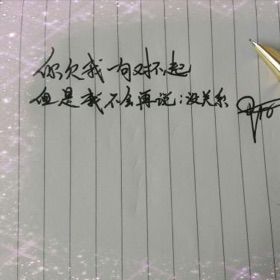 你欠我一句对不起
但是我不会再说:没关系